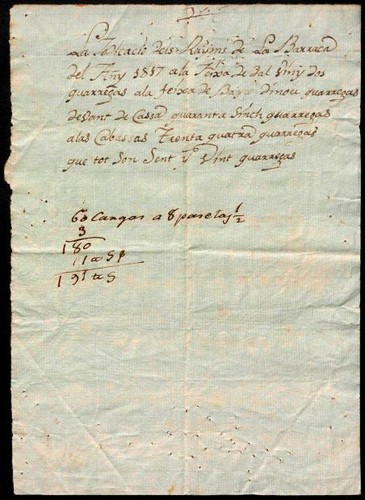 La Tatacio dels Rayms de La Barraca
del Añy 1817 a la feixa de dal viny dos
quarregas a la feixa de Baix dinou quarregas
devant de Cassa quaranta sinch quarregas
a las Cabassas Trenta quatra quarregas
que tot son Sent y Vint quarregas
60 Cargas a 8 parelas ½
3
180
11
191